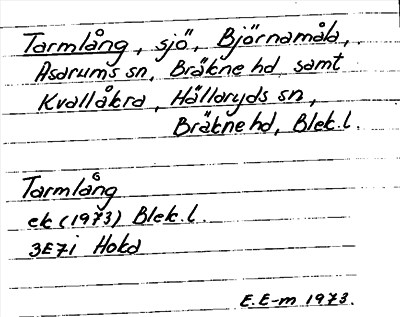 Tarmlång, sjö, Björnamåla,
Asarums sn, Bräkne hd samt
Kvallåkra, Hällaryds sn,
Bräkne hd, Blek. l.
Tarmlång
ek (1973) Blek. l.
3E7i Hoka
E. E-m 1973.